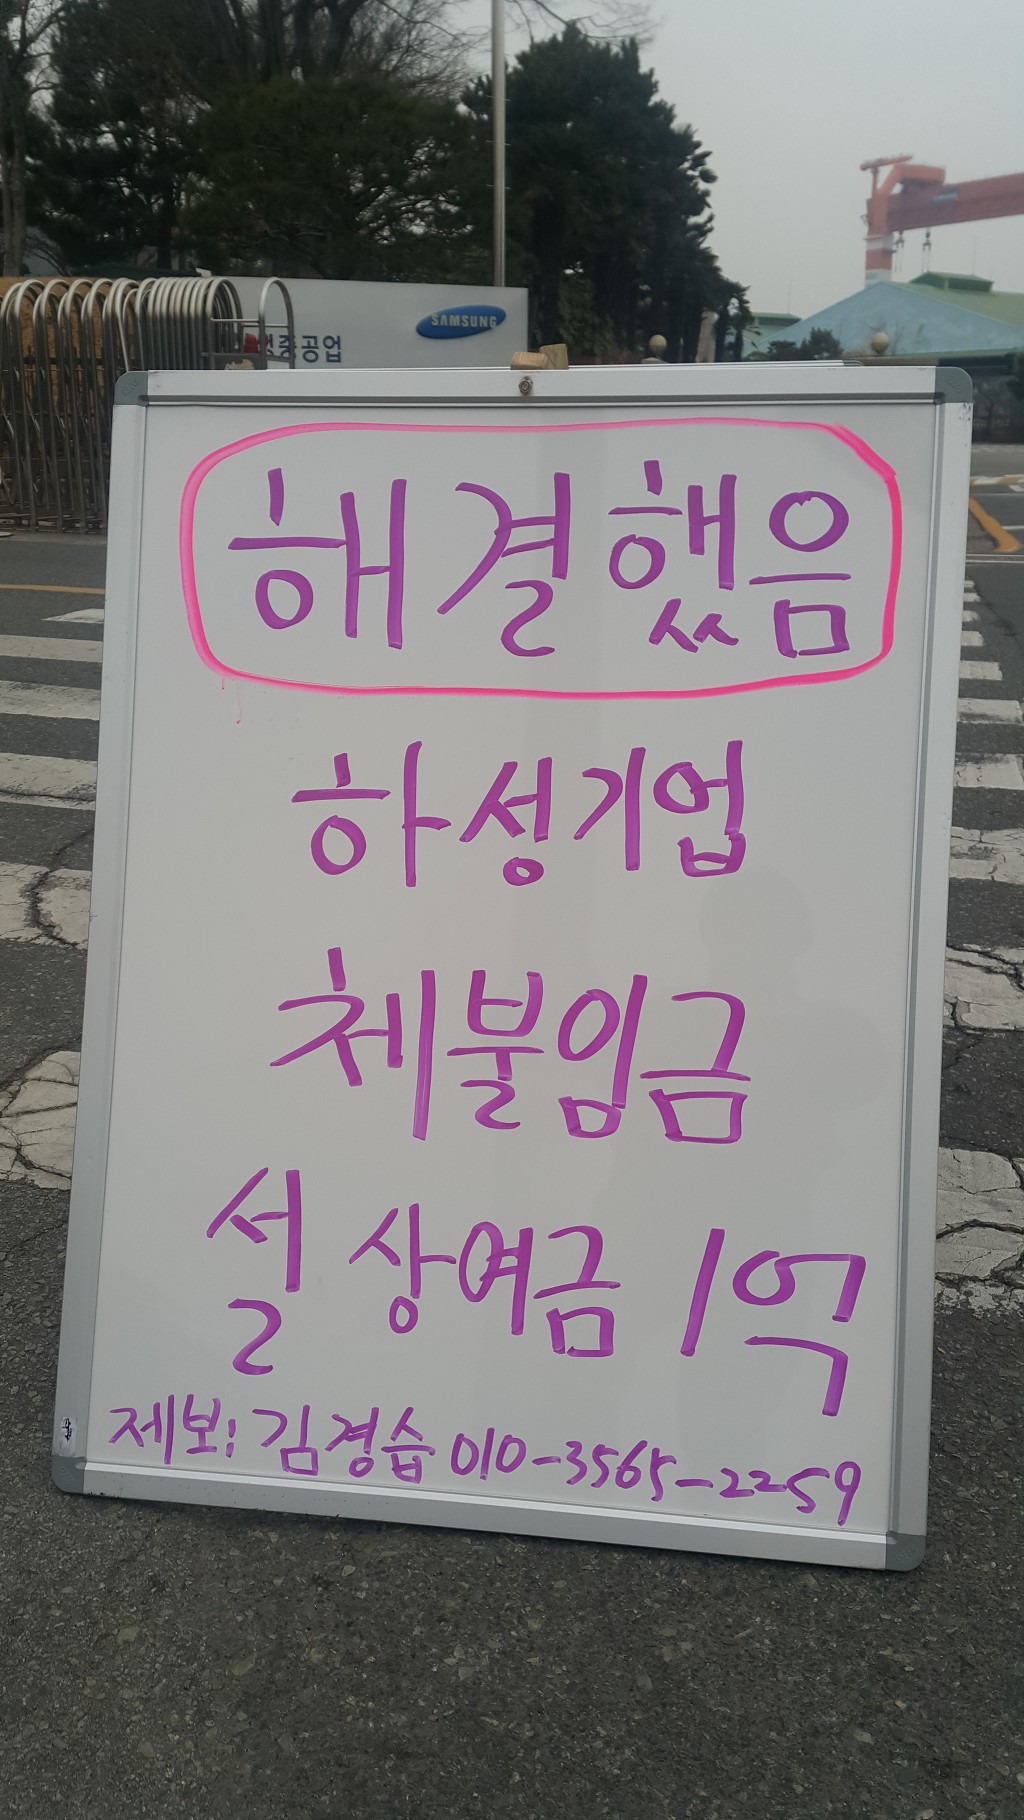 SAMSUNG
중공업
해결했음
하성기업
체불임금
설 상여금 1억
제보: 김경습 010-3565-2259